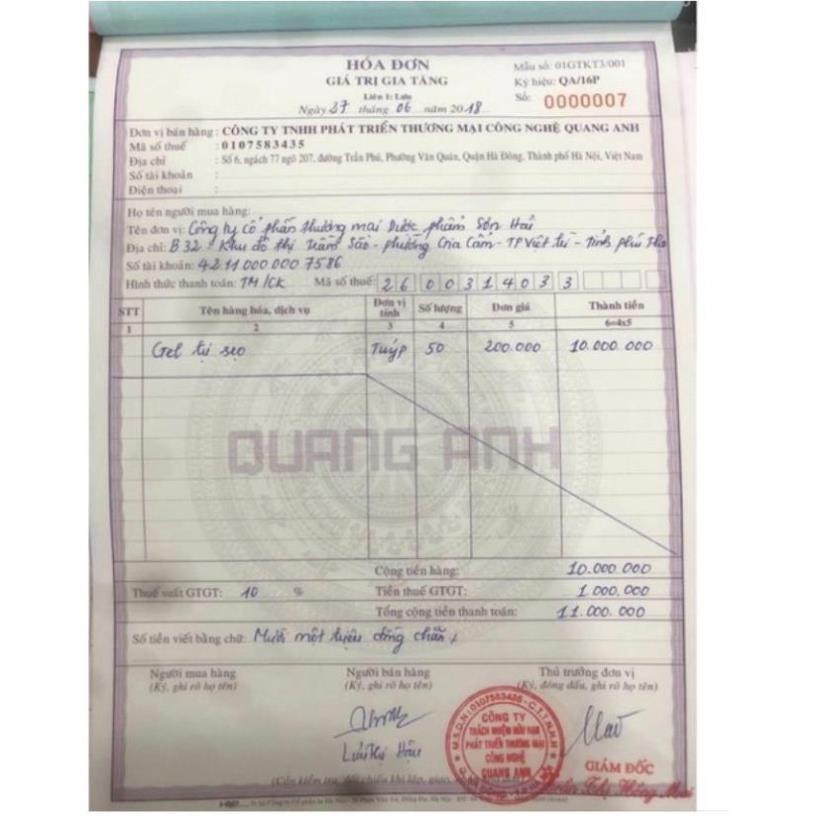 HÓA ĐƠN
GIÁ TRỊ GIA TĂNG
Liên 1: Lưu
Ngày 27 tháng 06 năm 2018
Mẫu số: 01GTKT3/001
Ký hiệu: QA/16P
Số: 0000007
Đơn vị bán hàng : CÔNG TY TNHH PHÁT TRIỂN THƯƠNG MẠI CÔNG NGHỆ QUANG ANH
Mã số thuế : 0107583435
Địa chỉ : Số 6, ngách 77 ngõ 207, đường Trần Phú, Phường Văn Quán, Quận Hà Đông, Thành phố Hà Nội, Việt Nam
Số tài khoản :
Điện thoại :
Họ tên người mua hàng:
Tên đơn vị: Công ty cổ phần thương mại Dược phẩm Sơn Hải
Địa chỉ: B32 - Khu đô thị Trầm Sào - phường Gia Cẩm - TP Việt trì - Tỉnh phú thọ
Số tài khoản: 4211000007586
Hình thức thanh toán: TM/CK Mã số thuế: 2600314033
STT Tên hàng hóa, dịch vụ Đơn vị tính Số lượng Đơn giá Thành tiền
1 2 3 4 5 6=4x5
Gel trị sẹo Tuýp 50 200.000 10.000.000
QUANG ANH
Cộng tiền hàng: 10.000.000
Thuế suất GTGT: 10 % Tiền thuế GTGT: 1.000.000
Tổng cộng tiền thanh toán: 11.000.000
Số tiền viết bằng chữ: Mười một triệu đồng chẵn
Người mua hàng Người bán hàng Thủ trưởng đơn vị
(Ký, ghi rõ họ tên) (Ký, ghi rõ họ tên) (Ký, đóng dấu, ghi rõ họ tên)
M.S.D.N: 0107583435 - C.T.T.N.H.H
CÔNG TY
TRÁCH NHIỆM HỮU HẠN
PHÁT TRIỂN THƯƠNG MẠI
CÔNG NGHỆ
QUANG ANH
GIÁM ĐỐC
Thị Hồng
(Cần kiểm tra, đối chiếu khi lập, giao,